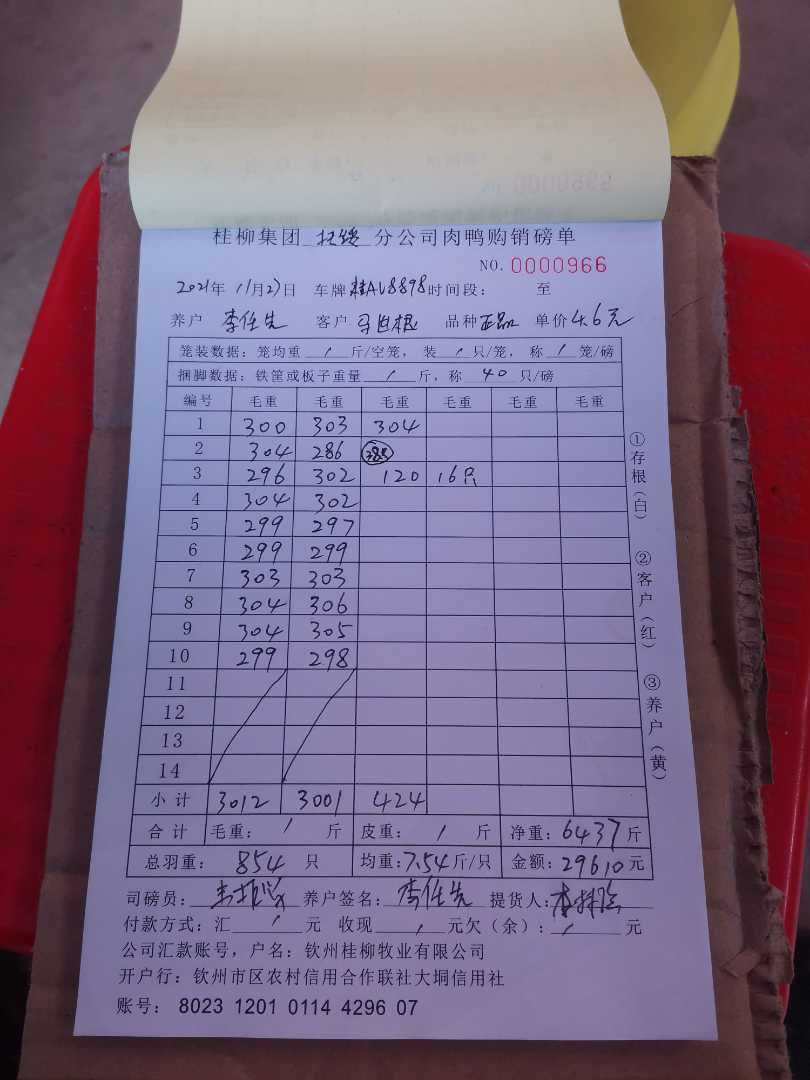 桂柳集团 分公司肉鸭购销磅单
NO. 0000966
2021年 11月27日 车牌 桂AV8898 时间段： 至
养户 李任先 客户 马日根 品种 正品 单价 4.6元
笼装数据：笼均重 / 斤/空笼，装 / 只/笼，称 / 笼/磅
捆脚数据：铁筐或板子重量 / 斤，称 40 只/磅
编号 毛重 毛重 毛重 毛重 毛重 毛重
1 300 303 304
2 304 286
3 296 302 120 16只
4 304 302
5 299 297
6 299 299
7 303 303
8 304 306
9 304 305
10 299 298
11
12
13
14
小计 3012 3001 424
合计 毛重： / 斤 皮重： / 斤 净重：6437斤
总羽重： 854 只 均重：7.54斤/只 金额：29610元
司磅员： 养户签名：李任先 提货人：
付款方式：汇 / 元 收现 / 元欠（余）： / 元
公司汇款账号，户名：钦州桂柳牧业有限公司
开户行：钦州市区农村信用合作联社大垌信用社
账号： 8023 1201 0114 4296 07
①存根（白）
②客户（红）
③养户（黄）